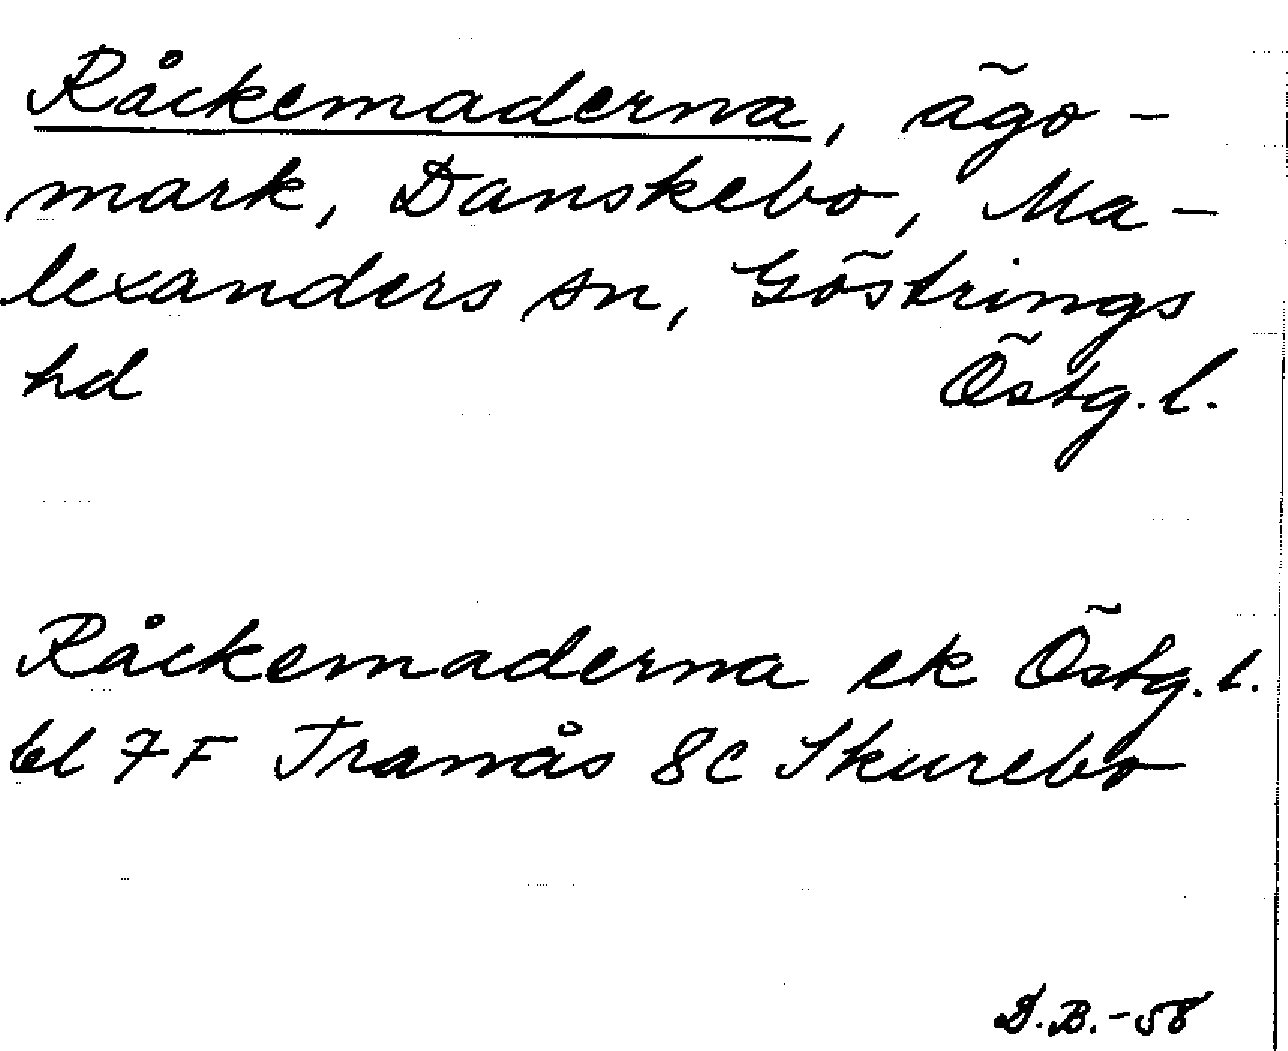 Råckemaderna, ägo-
mark, Danskebo, Ma-
lexanders sn, Göstrings
hd Östg. l.
Råckemaderna ek Östg. l.
bl 7F Tranås 8c Skurebo
D.B.-58